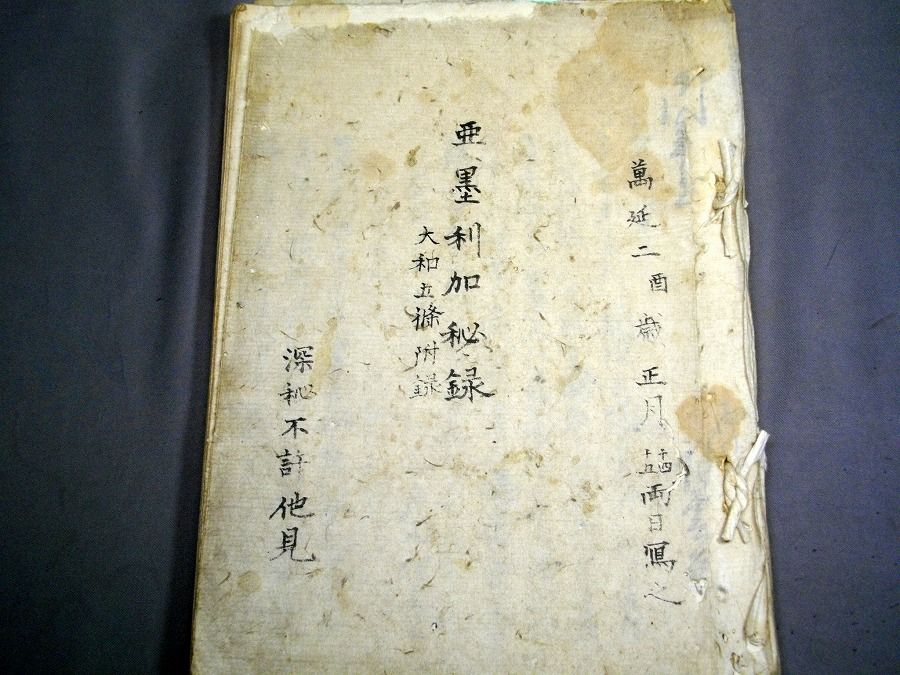 萬延二酉歳正月十四十五両日寫之
亜墨利加秘録
大和五條附録
深秘不許他見